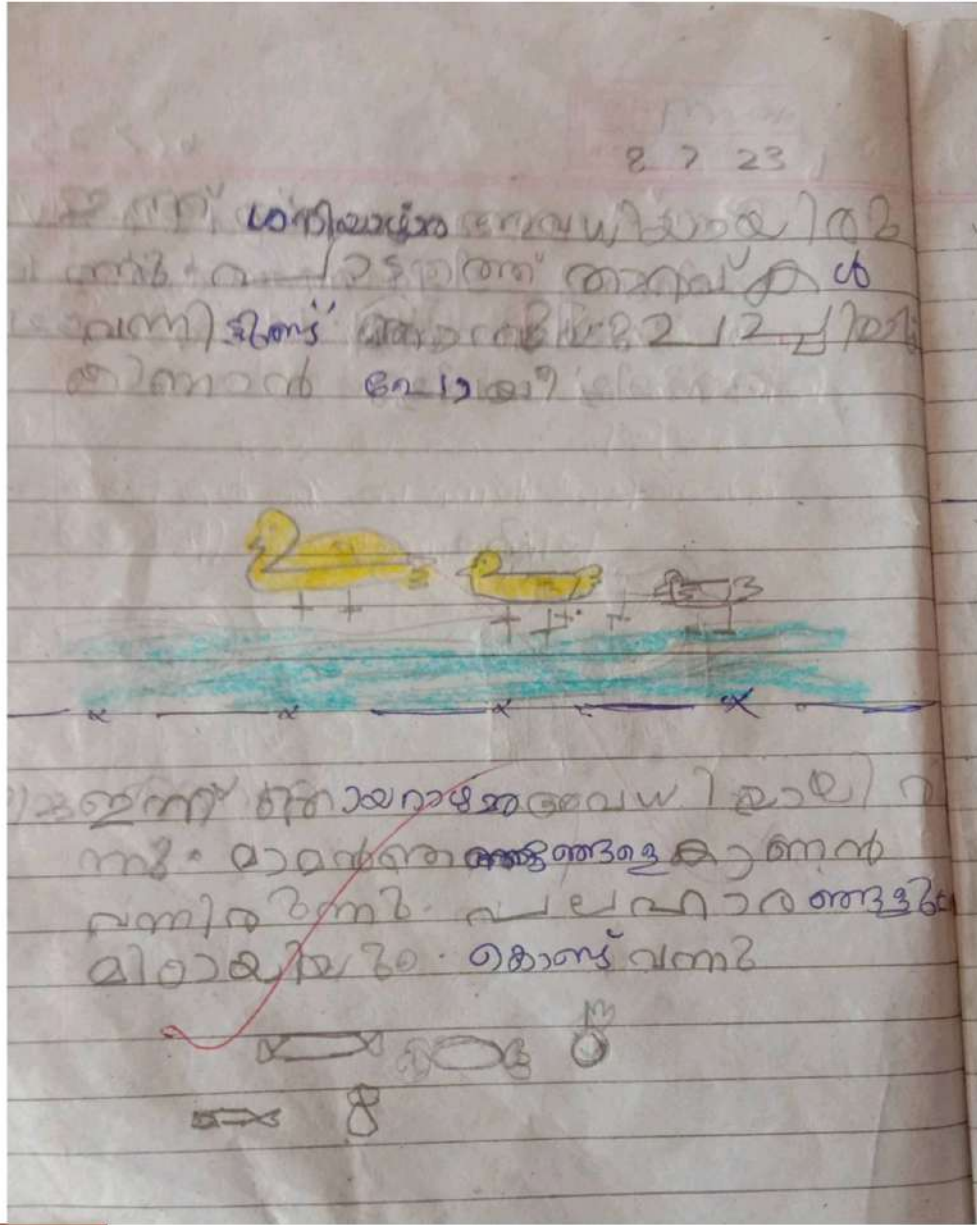 8 7 23
ഇന്ന് ശനിയാഴ്ച അവധിയായിരു
ന്നു പാടത്ത് താറാവ്കൾ
വന്നിട്ടുണ്ട്
കാണാൻ പോയി
ഇന്ന് ഞായറാഴ്ച അവധിയായിരു
ന്നു. മാമൻ ഞങ്ങളെ കാണൻ
വന്നിരുന്നു. പലഹാരങ്ങളും
മിഠായിയും. കൊണ്ട് വന്നു